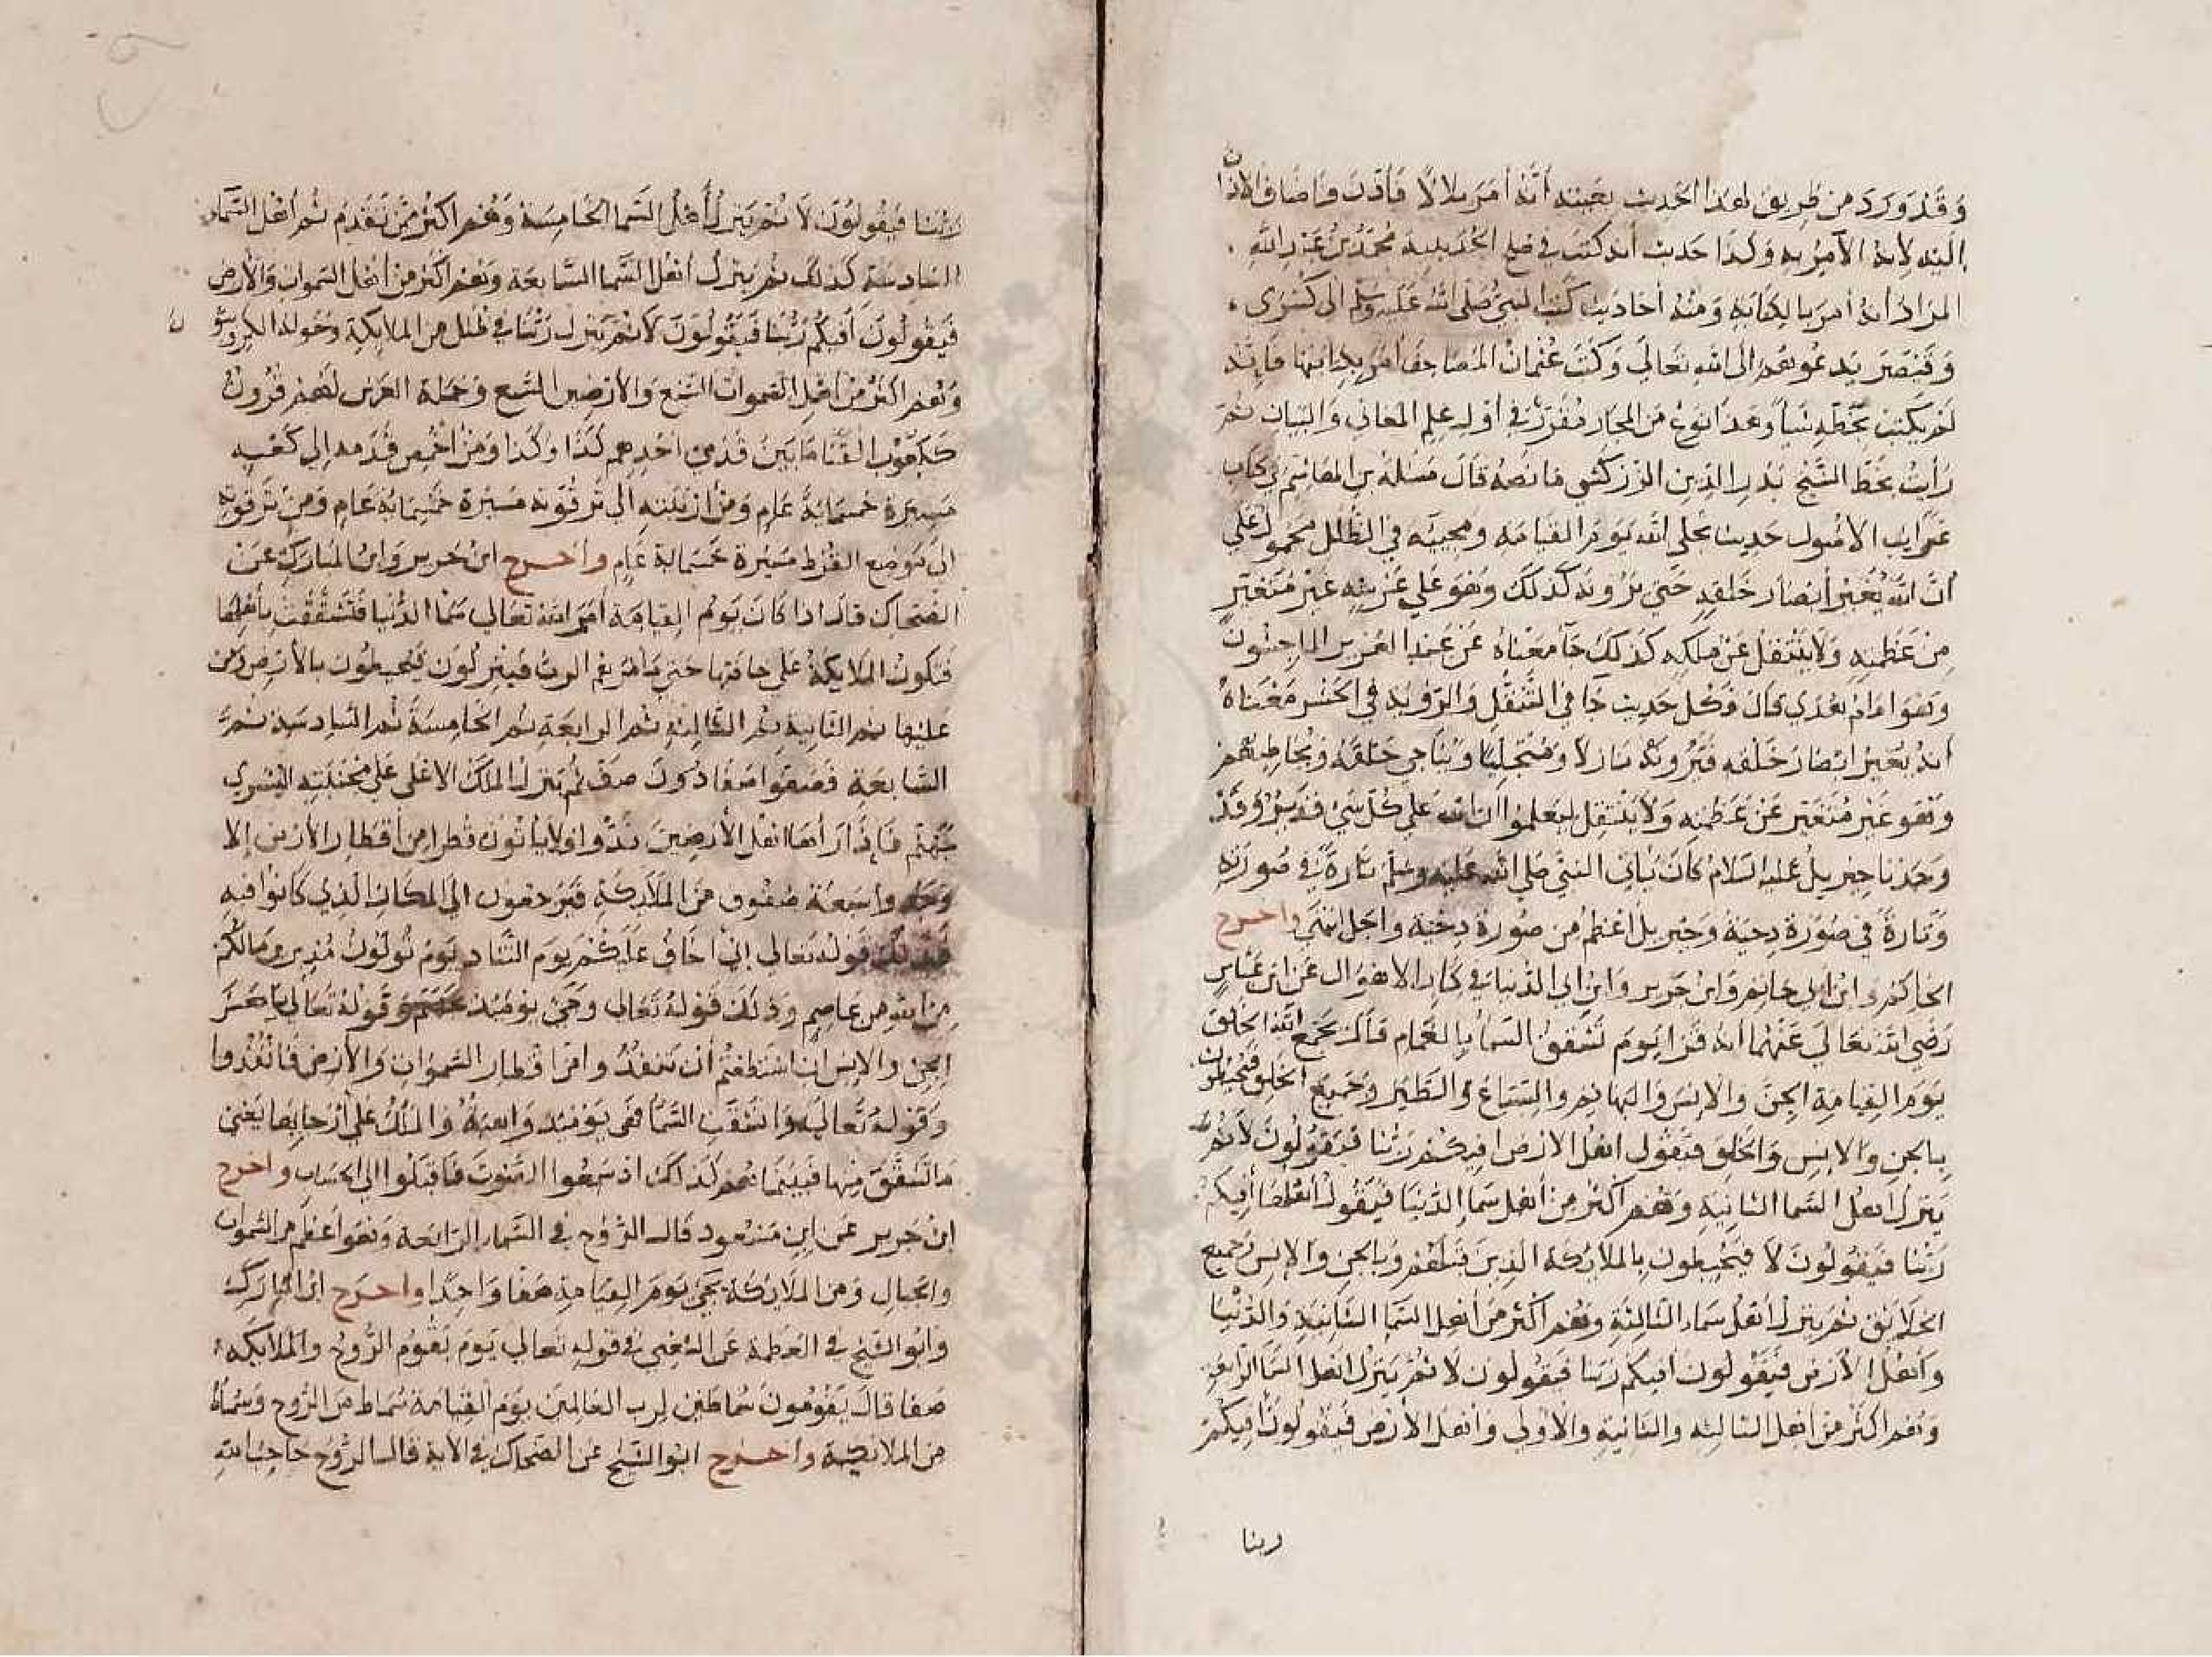 وَقَدْ وَرَدَ مِن طَرِيق هَذَا الحَدِيث بعينه أَنَّهُ أَمَرَ بلالا فَأذّنَ وَاضَافَ الاذان
اليْه لأنهُ الآمِرُ به وَكَذَا حَديث أنه كتَبَ في صلح الحُدَيْبيَة مُحَمَّدُ بْنُ عَبْدِ اللَّهِ
المرَادُ أنهُ أمَرَ بالكتَابَةِ وَمنْهُ أحَاديث كَتَبَ النبيُّ صَلى اللهُ عَليه وسَلم الى كسْرَى
وَقَيْصَرَ يَدعُوهُم الى الله تعَالَى وَكَتَبَ عُثْمانُ المَصَاحفَ أمَرَ بِكِتَابَتها فَإنّهُ
لَمْ يَكْتب بخَطّهِ شَيأ وهذا نَوعٌ مِنَ المجَاز مُقَرَّرٌ في أوّل عِلم المعَاني وَالبَيَان ثُمّ
رَأيْتُ بخَطّ الشَّيْخ بَدْرِ الدّين الزّرْكَشي مَا نَصّهُ قالَ مَسْلَمة بن القاسِم في كتاب
غَرَايب الاصُول حَديث تجَلي الله يَوْمَ القيَامَه وَمَجيئه في الظُّلَل مَحمُولٌ عَلَى
انَّ اللهَ يُغيّرُ أبْصَارَ خَلقهِ حَتّى يَرَوْنَهُ كَذَلكَ وَهُوَ عَلى عَرْشِهِ غَيْر مُتَغَيّر
مِنْ عَظمَتِهِ وَلا يَنْتَقلُ عَنْ مُلكِهِ كذلكَ جَآ مَعْنَاهُ عَنْ عَبْد العَزيز الماجشُون
قالَ فكُلّ حَديث جَآ في التّنَقّل وَالرّؤيَة في الحَشْر مَعْنَاهُ
أنهُ يُغَيّرُ ابْصَارَ خَلقه فَيَرَوْنَهُ نَازلا وَمُتَجَلّيًا وَيُنَاجي خَلقَهُ وَيُخَاطبهُم
وَهُوَ غَيْر مُتَغَيّر عَنْ عَظَمَته وَلا يَنْتَقل ليَعلمُوا انّ اللهَ عَلى كُلّ شَيْ قَديرٌ وَقَدْ
وَجَدْنَا جبْريلَ عليه السّلامُ كَانَ يَاتى النبيَّ صَلى الله عَليه وسَلّم تارَةً في صُورَته
وَتَارَةً في صُورَة دِحيَةَ وَجبْريل اعْظمُ مِن صُورَة دِحْيَة وَاجَل انتهَى واخرج
الحَاكم وابْنُ ابى حَاتم وَابْن جَرير وَابْن ابي الدّنيَا في كتَاب الاهْوَال عَن ابن عَبّاس
رَضي الله تعَالَى عَنْهُما أنهُ قَرَا يَوْمَ تَشَقّقُ السّمَا بالغَمَام قَالَ يَجْمَع الله الخلقَ
يَوْمَ القيَامَة الجنّ وَالانسَ وَالبَهَايم وَالسّبَاعَ وَالطّيرَ وَجَميعَ الخَلق فيُحيطون
بالجنّ وَالانْس وَالخلق فيَقول اهْلُ الارْض افيكُمْ رَبّنَا فَيَقُولُونَ لا ثُمّ
يَنزل اهْلُ السّما الثانيَة وَهُم اكثَرُ منْ أهْل سَمآ الدّنيَا فيَقُول أهْلهَا أفيكُم
رَبّنَا فيَقُولُونَ لا فَيُحِيطُونَ بالمَلائكَة الذينَ قبْلهُم وَبالجن وَالانْس وَجميع
الخَلايق ثم يَنزل أهْلُ سَماء الثّالثَة وهُم أكْثَر مِنْ أهْل السّما الثّانيَة وَالدّنيَا
وَأهْلُ الأرْض فَيَقُولُونَ أفيكم رَبّنَا فَيَقُولُونَ لا ثُمّ يَنْزلُ اهْلُ السّمآ الرّابعَة
وَهُم اكثَرُ مِن اهْل الثالثه وَالثانيَة وَالاولى وَاهل الأرْض فَيقُولُونَ أفيكُمْ
ربنا
رَبّنَا فَيَقُولُونَ لا ثم يَنزل أهْلُ السّما الخَامسَة وَهُم اكثَرُ ممّن تَقَدمَ ثُم اهْل السّماء
السّادسَة كَذلكَ ثم يَنزل أهْلُ السّما السّابعَة وهُم أكثَر مِن أهْل السّموات وَالأرْض
فَيَقُولُونَ أفيكُم رَبّنَا فَيَقُولُونَ لا ثم يَنزل رَبّنَا في ظُلَل من الملايكة وَحَوله الكروبيون
وَهُم اكثَرُ مِن أهْل السّموات السّبْع وَالأرَضين السّبع وَحَمَلة العَرْش لَهُمْ قُرُونٌ
كَكُعُوب القَنَا مَا بَيْنَ قَدَمي احَدِهم كَذَا وكَذَا وَمِنْ اخْمَص قَدَمه إلى كَعْبه
مَسيرَة خمسمايَة عَام وَمن ارْنَبَته الى تَرْقوَته مَسيرَة خَمْسمايَة عَام وَمن تَرْقوَته
الى مَوْضع القُرْط مَسيرَة خَمسمايَة عَامٍ واخرج ابْنُ جَرير وَابْنُ المبَارَك عَنْ
الضّحّاك قالَ اذا كَانَ يَوْمُ القيَامَة أمَرَ الله تعَالى سَمَا الدّنيَا فَتَشَقّقَتْ بأهْلهَا
فَتَكُونُ المَلايكَةُ عَلى حَافتها حَتى يَأمُرَهم الربّ فَيَنزلُونَ فيُحيطُون بالأرْض ومَن
عَليْهَا ثم الثّانيَة ثُم الثّالثة ثُم الرابعَة ثم الخَامسَةَ ثُم السّادسَة ثمّ
السّابعَة فَصَفّوا صَفا دُونَ صَف ثم يَنزل الملكُ الاعْلى عَلى مجَنّبَته اليُسْرى
جَهَنّم فإذَا رَأهَا اهْلُ الأرْضينَ نَدّوا وَلا يأتُونَ قطرا مِن أقطَار الأرْض إلا
وجدوا سَبْعَة صُفُوف مِنَ المَلائكَة فَيَرْجعُونَ الى المكَان الّذي كَانُوا فيه
فَذلكَ قَوله تعَالى إنّى اخَافُ عَلَيْكُم يَوْم التّنَاد يَوْمَ تُوَلّونَ مُدْبرينَ مَا لَكُمْ
مِنَ الله مِن عَاصم وَذلكَ قَولهُ تَعَالى وَجيَ يَوْمَئذ بجَهَنّم وَقَوْلهُ تَعَالى يَا مَعْشَرَ
الجِنّ وَالانْس ان اسْتَطَعْتُمْ أنْ تَنفُذُوا مِن اقطَار السّمَوات وَالأرْض فَانْفُذُوا
وَقَوْلهُ تَعَالى وَانْشَقّت السّمَا فهيَ يَوْمَئذ وَاهيَةٌ وَالمَلكُ عَلى أرْجَائهَا يَعْنى
مَا تشَقّقَ منْهَا فَبَيْنَمَا هُم كَذلكَ اذْ سَمعُوا الصّوْتَ فَاقْبَلُوا الى الحسَاب واخرج
ابْنُ جَرير عَن ابن مَسْعُود قَالَ الرُّوُح في السّمَاء الرّابعَة وَهُوَ اعْظَم مِن السّموات
وَالجبَال وَمِنَ المَلائكَة يَجيُ يَوْمَ القيَامَة صَفا وَاحدًا واخرج ابْنُ المبَارَكِ
وَابُو الشّيْخ في العَظمة عَن الشّعْبى في قَوله تَعَالى يَوْمَ يَقُومُ الرُّوحُ وَالمَلائكَةُ
صَفا قَالَ يَقُومُونَ سمَاطَيْن لرَب العَالمينَ يَوْمَ القيَامَة سمَاط مِنَ الرُّوح وَسمَاط
مِنَ المَلائكَة واخرج ابُو الشّيْخ عَن الضحاك في الاية قَالَ الرُّوْحُ حَاجبُ الله